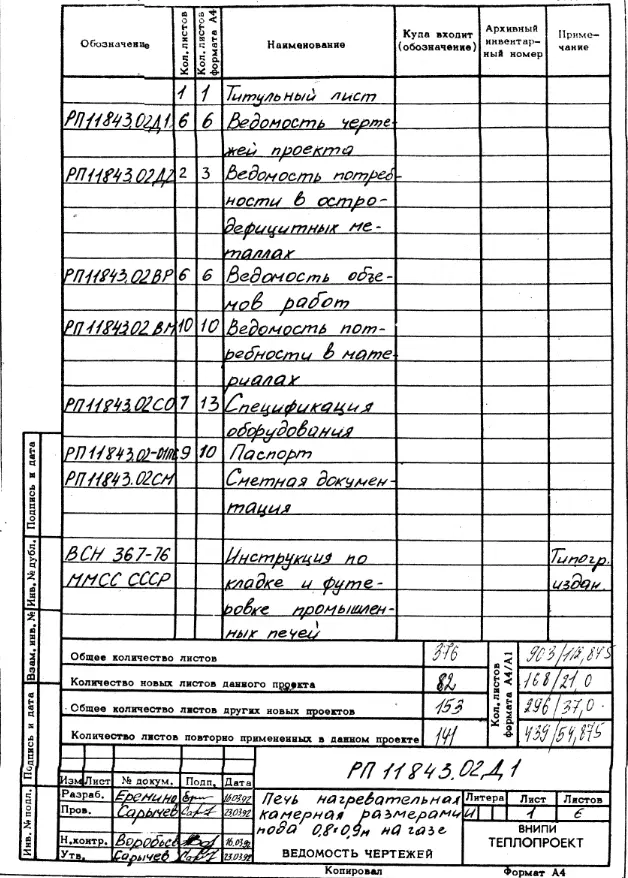 Обозначение Кол. листов Кол. листов формата А4 Наименование Куда входит (обозначение) Архивный инвентарный номер Примечание
1 1 Титульный лист
РП11843.02Д1 6 6 Ведомость черте-
жей проекта
РП11843.02Д2 2 3 Ведомость потреб-
ности в остро-
дефицитных ме-
таллах
РП11843.02ВР 6 6 Ведомость объе-
мов работ
РП11843.02ВМ 10 10 Ведомость пот-
ребности в мате-
риалах
РП11843.02СО 7 13 Спецификация
оборудования
РП11843.02-01ПС 9 10 Паспорт
РП11843.02СМ Сметная докумен-
тация
ВСН 367-76 Инструкция по Типогр.
ММСС СССР кладке и футе- издан.
ровке промышлен-
ных печей
Общее количество листов 376
Количество новых листов данного проекта 82
Общее количество листов других новых проектов 153
Количество листов повторно примененных в данном проекте 141
Кол. листов формата А4/А1
903/112,875
168/21,0
296/37,0
439/54,875
РП 11843.02Д1
Изм Лист № докум. Подп. Дата
Разраб. Еремина 16.03.92
Пров. Сарычев 23.03.92
Н.контр. Воробьев 16.03.92
Утв. Сарычев 23.03.92
Печь нагревательная
камерная размерами
пода 0,8×0,9м на газе
ВЕДОМОСТЬ ЧЕРТЕЖЕЙ
Литера Лист Листов
И 1 6
ВНИПИ
ТЕПЛОПРОЕКТ
Копировал Формат А4
Инв. № подл. Подпись и дата Взам. инв. № Инв. № дубл. Подпись и дата